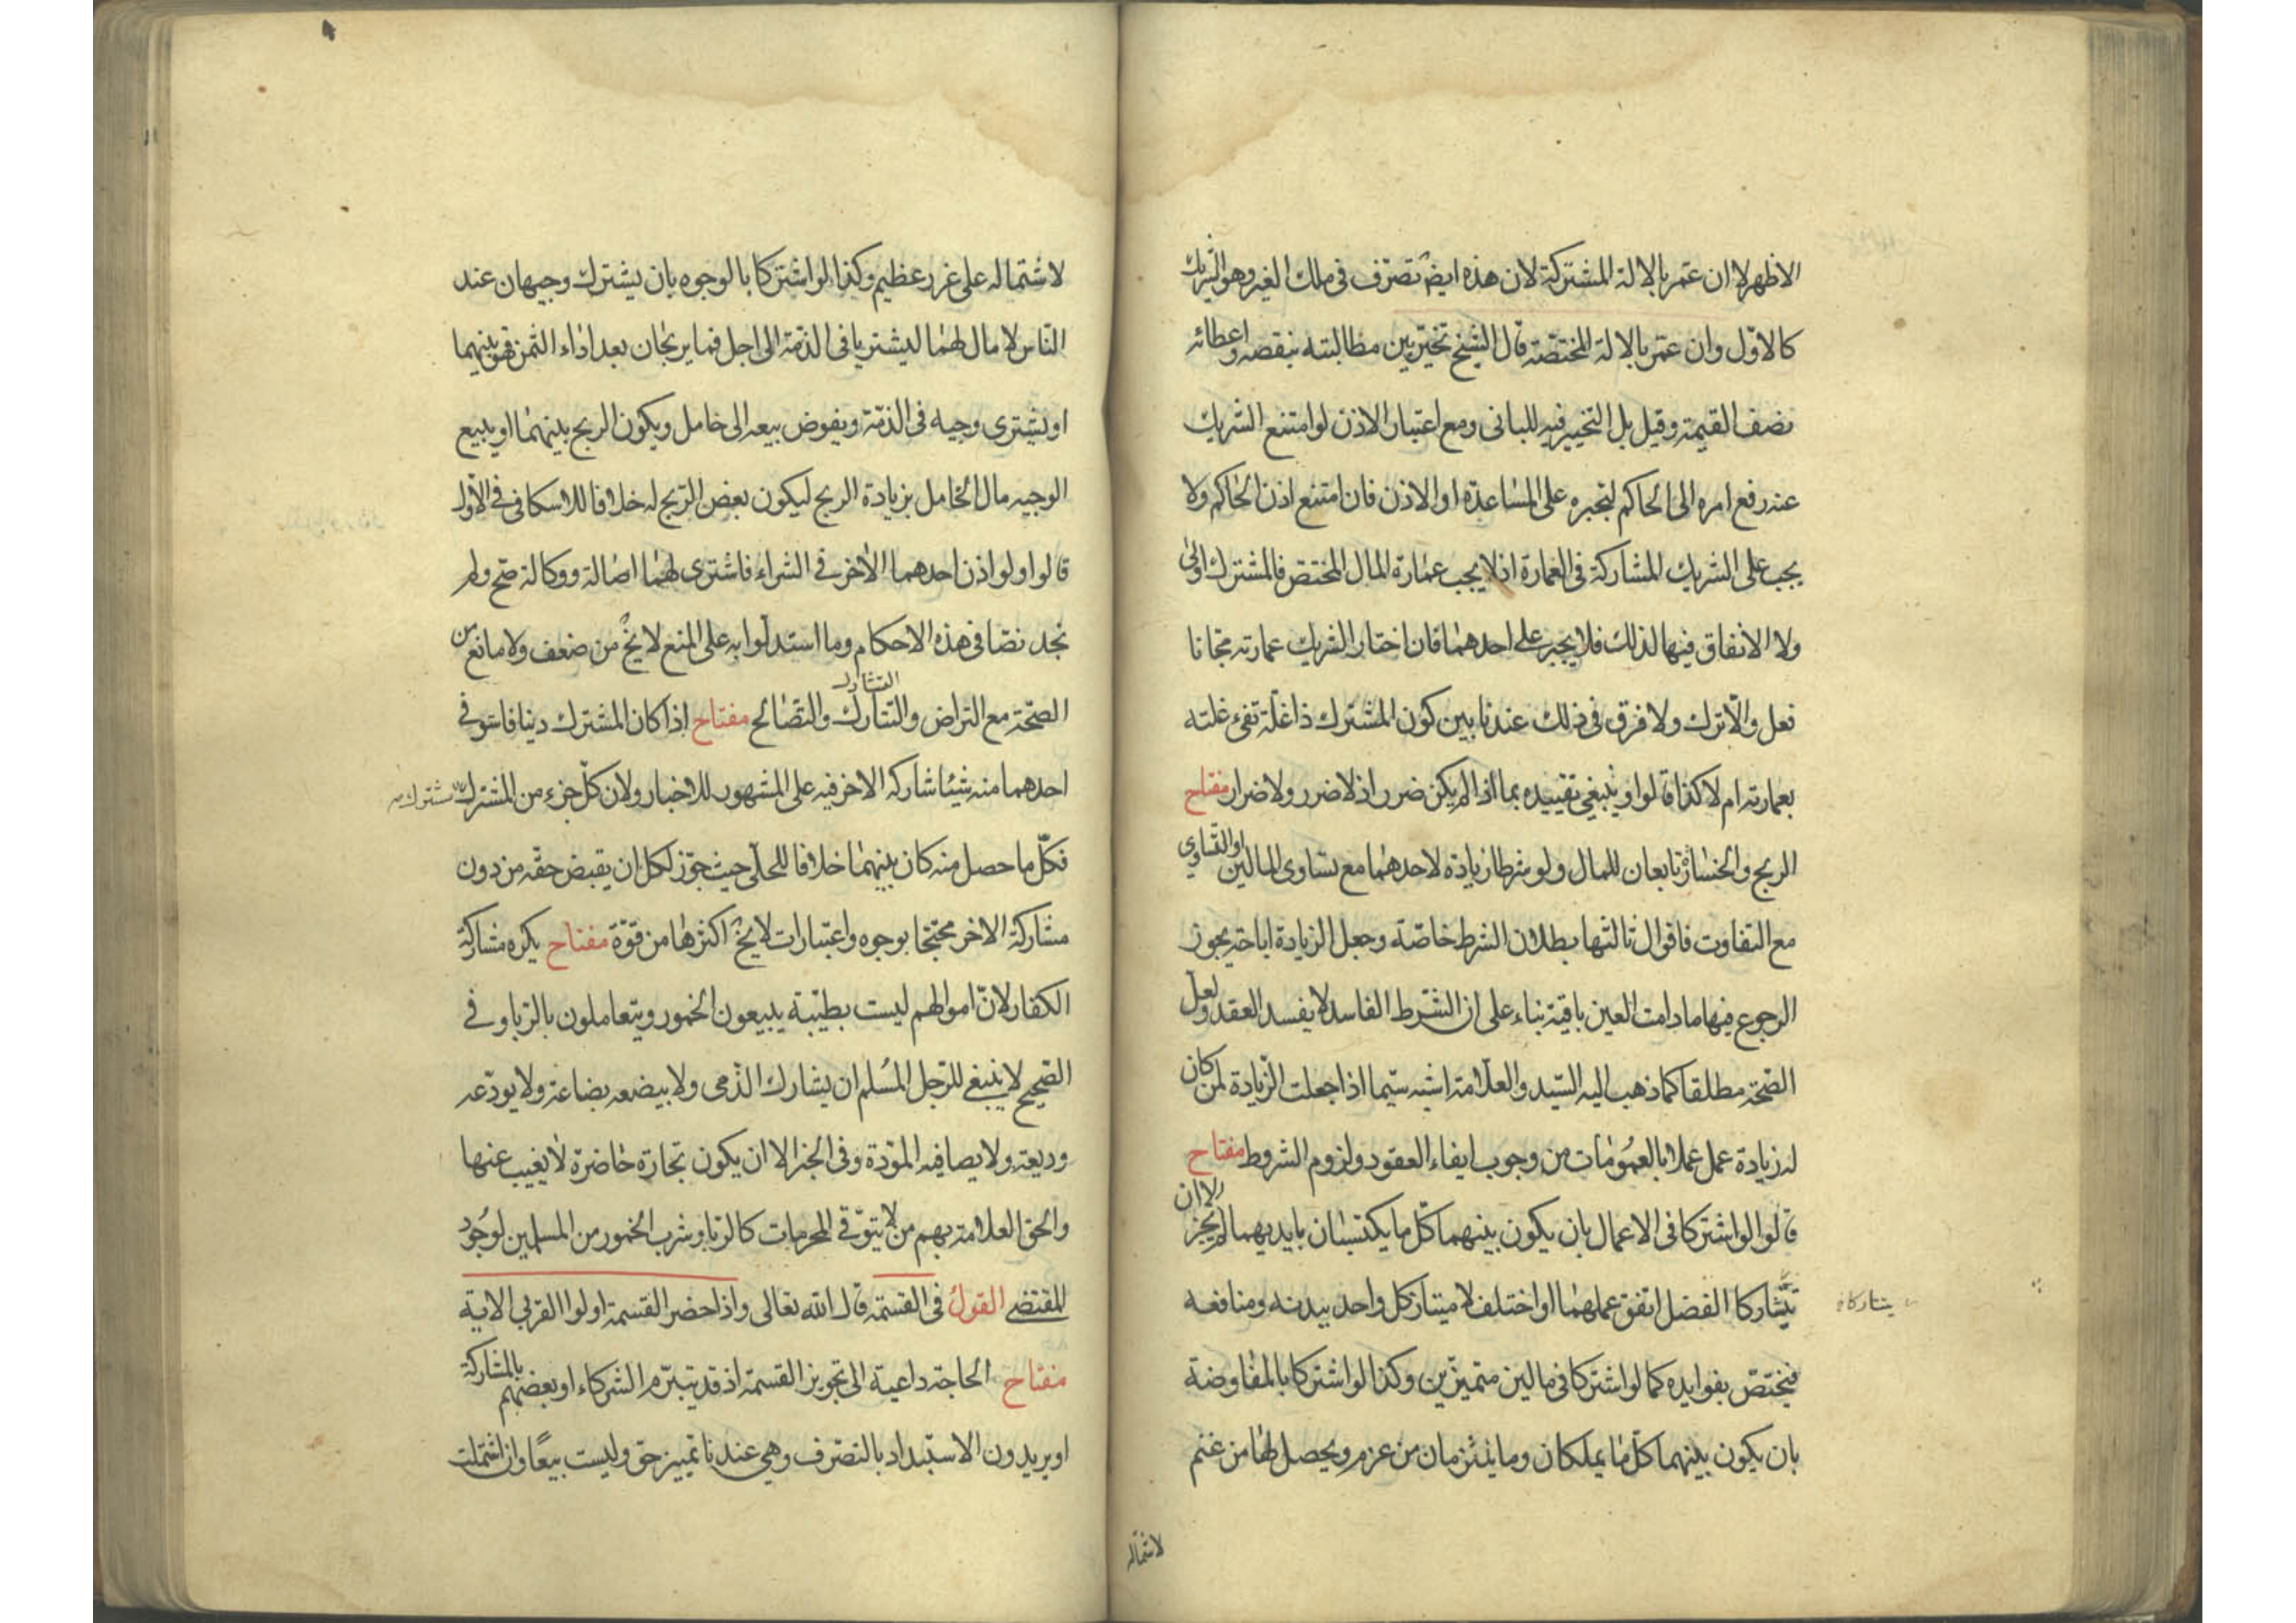 الاظهر لا ان عمر بالالة المشتركة لان هذه ايضً تصرف فى ملك الغير وهو الشريك
كالاوّل وان عمّر بالالة المختصّة قال الشيخ تخيّر بين مطالبته بنقصه واعطائه
نصف القيمة وقيل بل التخيير فيه للبانى ومع اعتبار الاذن لو امتنع الشريك
عنه رفع امره الى الحاكم ليجبره على المساعدة او الاذن فان امتنع اذن الحاكم ولا
يجب على الشريك المشاركة فى العمارة اذ لا يجب عمارة المال المختص فالمشترك اولى
ولا الانفاق فيها لذلك فلا يجبر على احدهما فان اختار الشريك عمارته مجّانا
فعل والّا ترك ولا فرق فى ذلك عندنا بين كون المشترك ذا غلّة تفىء غلته
بعمارته ام لا كذا قالوا وينبغى تقييده بما اذا لم يكن ضرر اذ لا ضرر ولا ضرار مفتاح
الربح والخسارة تابعان للمال ولو شرطا زيادة لاحدهما مع تساوى المالين او التساوى
مع التفاوت فاقوال ثالثها بطلان الشرط خاصّة وجعل الزيادة اباحة يجوز
الرجوع فيها ما دامت العين باقية بناء على ان الشّرط الفاسد لا يفسد العقد ولعلّ
الصّحة مطلقا كما ذهب اليه السّيد والعلّامة اشبه سيّما اذا جعلت الزّيادة لمن كان
له زيادة عمل عملا بالعمومات من وجوب ايفاء العقود ولزوم الشروط مفتاح
قالوا لو اشتركا فى الاعمال بان يكون بينهما كلّ ما يكتسبان بايديهما لم يجز الا ان
يتشاركا الفضل اتفق عملهما او اختلف لامتياز كل واحد ببدنه ومنافعه
يتتاركا
فيختصّ بفوايده كما لو اشتركا فى مالين متميزّين وكذا لو اشتركا بالمفاوضة
بان يكون بينهما كلّ ما يملكان وما يلتزمان من عزم ويحصل لهما من غنم
لاشتماله
لاشتماله على غرر عظيم وكذا لو اشتركا بالوجوه بان يشترك وجيهان عند
النّاس لا مال لهما ليشتريا فى الذمّة الى اجل فما يربحان بعد اداء الثمن فهو بينهما
او يشترى وجيه فى الذمّة ويفوض بيعه الى خامل ويكون الربح بينهما او يبيع
الوجيه مال الخامل بزيادة الربح ليكون بعض الرّبح له خلافا للاسكافى فى الاوّل
قالوا ولو اذن احدهما الاخر فى الشراء فاشترى لهما اصالة ووكالة صحّ ولم
نجد نصّا فى هذه الاحكام وما استدلّوا به على المنع لا يخ من ضعف ولا مانع من
التشارك
الصّحّة مع التراض والتتارك والتصالح مفتاح اذا كان المشترك دينا فاستوفى
احدهما منه شيئا شاركه الاخر فيه على المشهور للاخبار ولان كلّ جزء من المشترك مشترك
فكلّ ما حصل منه كان بينهما خلافا للحلّى حيث جوّز لكل ان يقبض حقّه من دون
مشاركة الاخر محتجّا بوجوه واعتبارات لا يخ اكثرها من قوّة مفتاح يكره مشاركة
الكفار لانّ اموالهم ليست بطيّبة يبيعون الخمور ويتعاملون بالرّبا وفى
الصّحيح لا ينبغى للرّجل المسلم ان يشارك الذّمى ولا يبضعه بضاعة ولا يودّعه
وديعة ولا يصافيه المودّة وفى الخبر الا ان يكون تجارة حاضرة لا يغيب عنها
والحق العلامة بهم من لا يتوقّى المحرمات كالرّبا وشرب الخمور من المسلمين لوجود
المقتضى القول فى القسمة قال الله تعالى واذا حضر القسمة اولوا القربى الاية
مفتاح الحاجة داعية الى تجويز القسمة اذ قد يتبرّم الشركاء او بعضهم بالمشاركة
او يريدون الاستبداد بالتصرّف وهى عندنا تمييز حقّ وليست بيعًا وان اشتملت